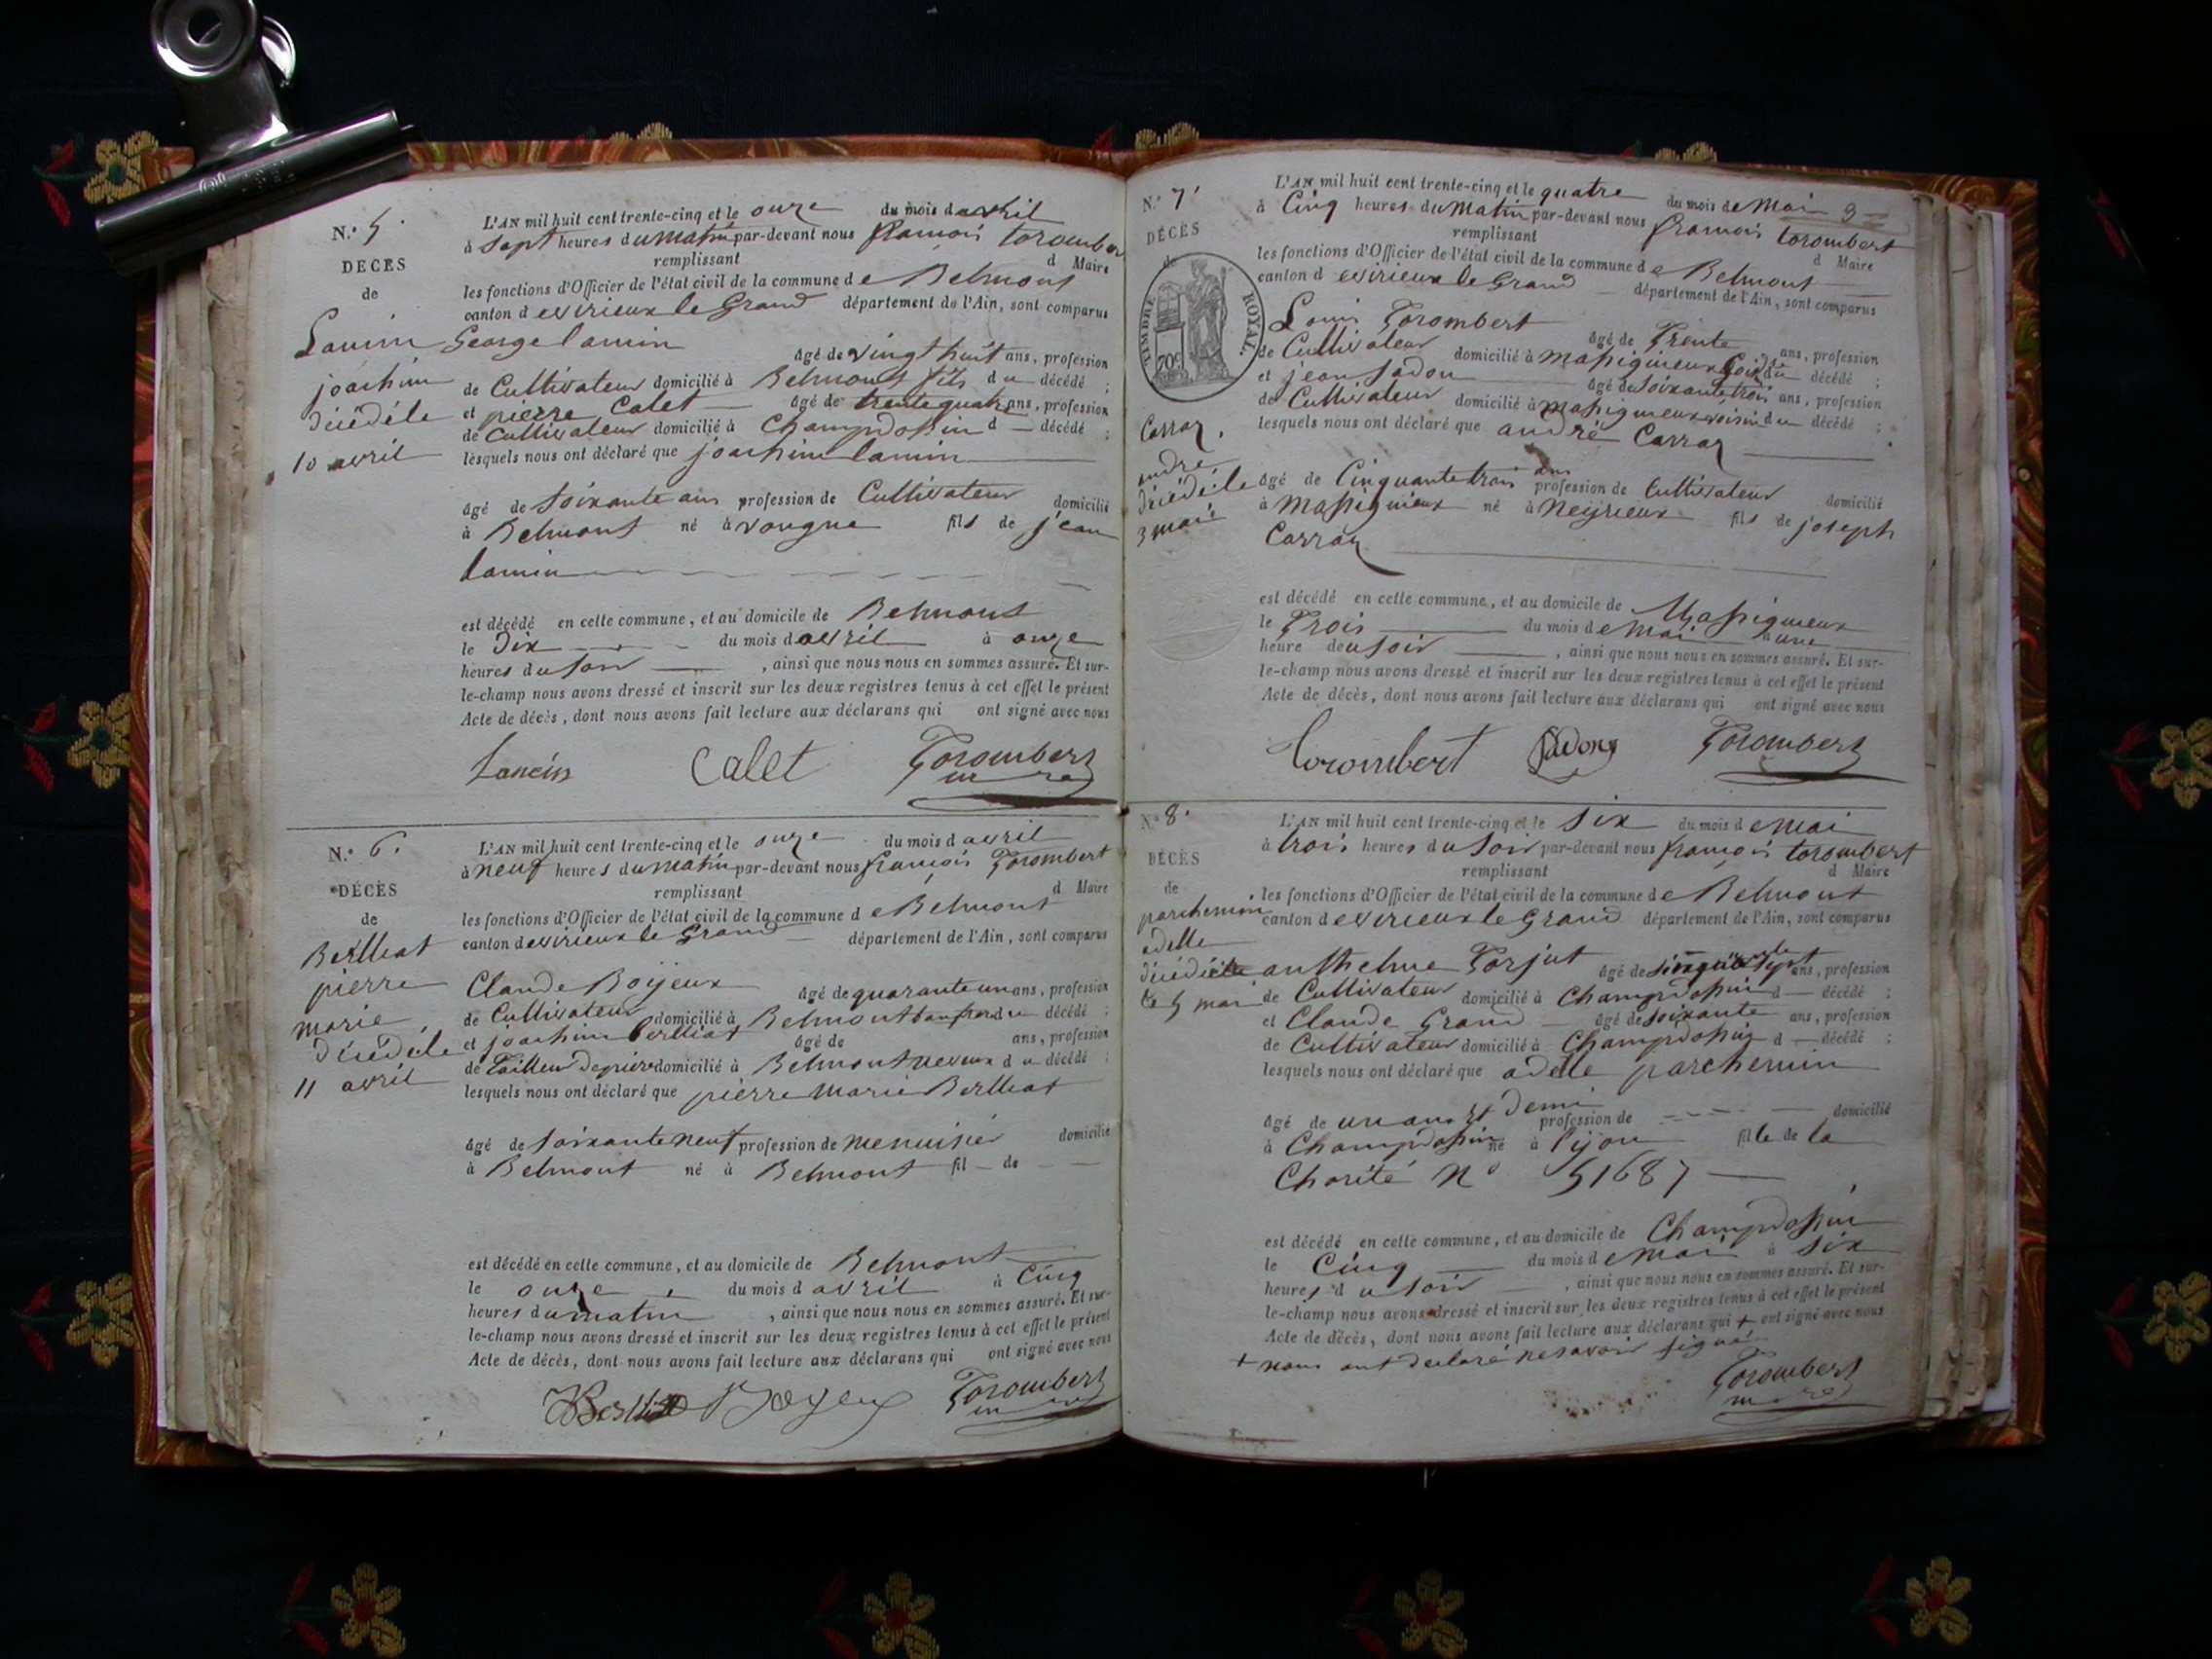 N.° 5.
DECES
de
Lanin
joachim
décédé le
10 avril
L'AN mil huit cent trente-cinq et le onze du mois d avril
à sept heures du matin par-devant nous françois torombert
remplissant d Maire
les fonctions d'Officier de l'état civil de la commune de Belmont
canton d evirieux le Grand département de l'Ain, sont comparus
George lanin
âgé de vingt huit ans, profession
de Cultivateur domicilié à Belmont fils du décédé ;
et pierre Calet âgé de trente quatre ans, profession
de Cultivateur domicilié à Champdossin d — décédé ;
lesquels nous ont déclaré que joachim lanin
âgé de soixante ans profession de Cultivateur domicilié
à Belmont né à vongne fils de jean
lanin
est décédé en cette commune, et au domicile de Belmont
le Dix du mois d avril à onze
heures du soir , ainsi que nous nous en sommes assuré. Et sur-
le-champ nous avons dressé et inscrit sur les deux registres tenus à cet effet le présent
Acte de décès, dont nous avons fait lecture aux déclarans qui ont signé avec nous
Lanein Calet Torombert
N.° 6.
DÉCÈS
de
Berlliat
pierre
marie
décédé le
11 avril
L'AN mil huit cent trente-cinq et le onze du mois d avril
à neuf heures du matin par-devant nous françois Torombert
remplissant d Maire
les fonctions d'Officier de l'état civil de la commune de Belmont
canton d evirieux le Grand département de l'Ain, sont comparus
Claude Boyeux âgé de quarante un ans, profession
de Cultivateur domicilié à Belmont du décédé ;
et joachim Berlliat âgé de ans, profession
de Tailleur de pierre domicilié à Belmont neveux du décédé ;
lesquels nous ont déclaré que pierre Marie Berlliat
âgé de soixante neuf profession de Menuisier domicilié
à Belmont né à Belmont fil — de —
est décédé en cette commune, et au domicile de Belmont
le onze du mois d avril à Cinq
heures du matin , ainsi que nous nous en sommes assuré. Et sur-
le-champ nous avons dressé et inscrit sur les deux registres tenus à cet effet le présent
Acte de décès, dont nous avons fait lecture aux déclarans qui ont signé avec nous
Berlliat Boyeux Torombert
N.° 7.
DÉCÈS
de
TIMBRE ROYAL.
70 c
Carraz
andré
décédé le
3 mai
3
L'AN mil huit cent trente-cinq et le quatre du mois de Mai
à Cinq heures du Matin par-devant nous françois torombert
remplissant d Maire
les fonctions d'Officier de l'état civil de la commune de Belmont
canton d evirieux le Grand département de l'Ain, sont comparus
Louis Torombert âgé de Trente ans, profession
de Cultivateur domicilié à Massigneux du décédé ;
et jean Sadon âgé de soixante trois ans, profession
de Cultivateur domicilié à Massigneux voisin du décédé ;
lesquels nous ont déclaré que andré Carraz
âgé de Cinquante trois ans profession de Cultivateur domicilié
à Massignieux né à Neyrieux fils de joseph
Carraz
est décédé en cette commune, et au domicile de Massigneux
le Trois du mois de Mai à une
heure du soir , ainsi que nous nous en sommes assuré. Et sur-
le-champ nous avons dressé et inscrit sur les deux registres tenus à cet effet le présent
Acte de décès, dont nous avons fait lecture aux déclarans qui ont signé avec nous
torombert Sadon Torombert
N.° 8.
DÉCÈS
de
parchemin
adelle
décédée
le 5 mai
L'AN mil huit cent trente-cinq et le six du mois d e mai
à trois heures du soir par-devant nous françois torombert
remplissant d Maire
les fonctions d'Officier de l'état civil de la commune de Belmont
canton d evirieux le Grand département de l'Ain, sont comparus
anthelme Torjut âgé de sept ans, profession
de Cultivateur domicilié à Champdossin d — décédé ;
et Claude Grand — âgé de soixante ans, profession
de Cultivateur domicilié à Champdossin d — décédé ;
lesquels nous ont déclaré que adelle parchemin
âgé de un an et demi profession de domicilié
à Champdossin né à Lyon fille de la
Charité N° 51687
est décédé en cette commune, et au domicile de Champdossin
le Cinq du mois d e mai à six
heures du soir , ainsi que nous nous en sommes assuré. Et sur-
le-champ nous avons dressé et inscrit sur les deux registres tenus à cet effet le présent
Acte de décès, dont nous avons fait lecture aux déclarans qui + ont signé avec nous
+ nous ont declaré ne savoir signer
Torombert